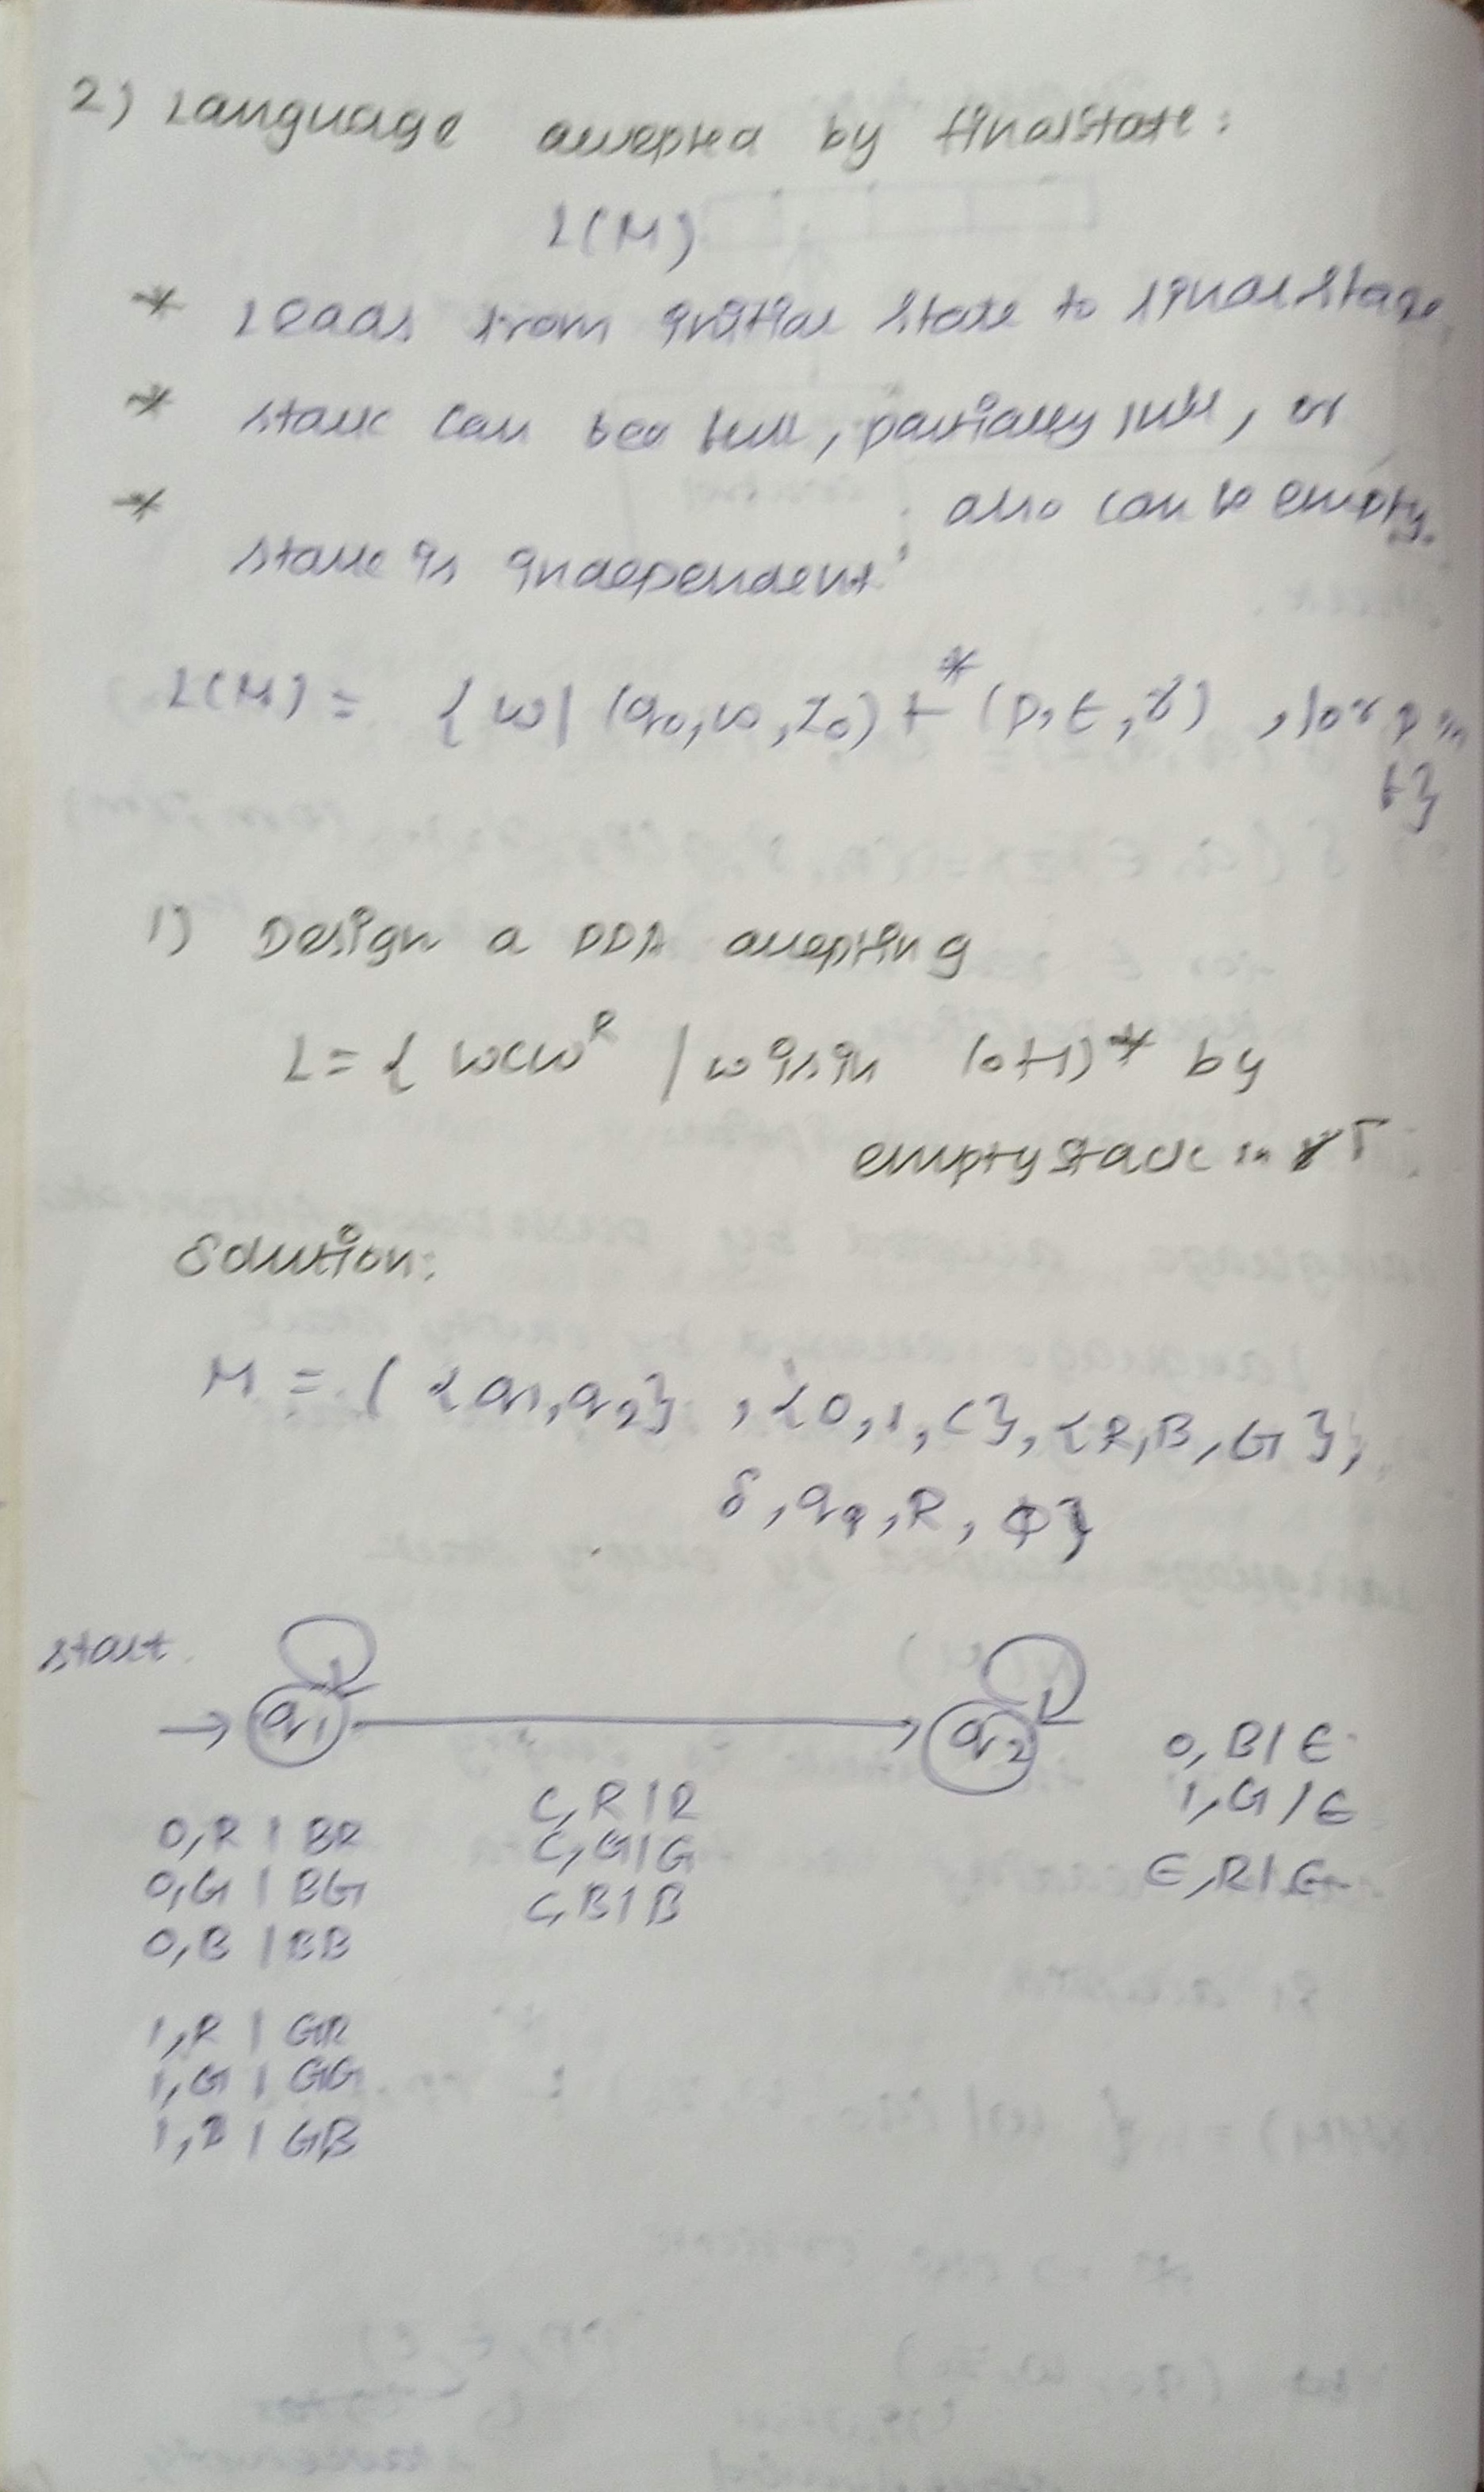 2) Language accepted by finalstate:
L(M)
* Leads from initial state to final stage
* stack can bee full, partially full, or
also can be empty.
* stack is independent
L(M) = { w | (q0, w, z0) ⊢* (p, ε, γ) , for p in
F}
1) Design a PDA accepting
L = { wcwᴿ / w is in (0+1)* by
empty stack in
Solution:
M = ( {q1, q2} , {0, 1, C}, {R, B, G},
δ, q1, R, φ}
start
→ q1 q2
0, B / ε
1, G / ε
ε, R / ε
C, R / R
C, G / G
C, B / B
0, R / BR
0, G / BG
0, B / BB
1, R / GR
1, G / GG
1, B / GB